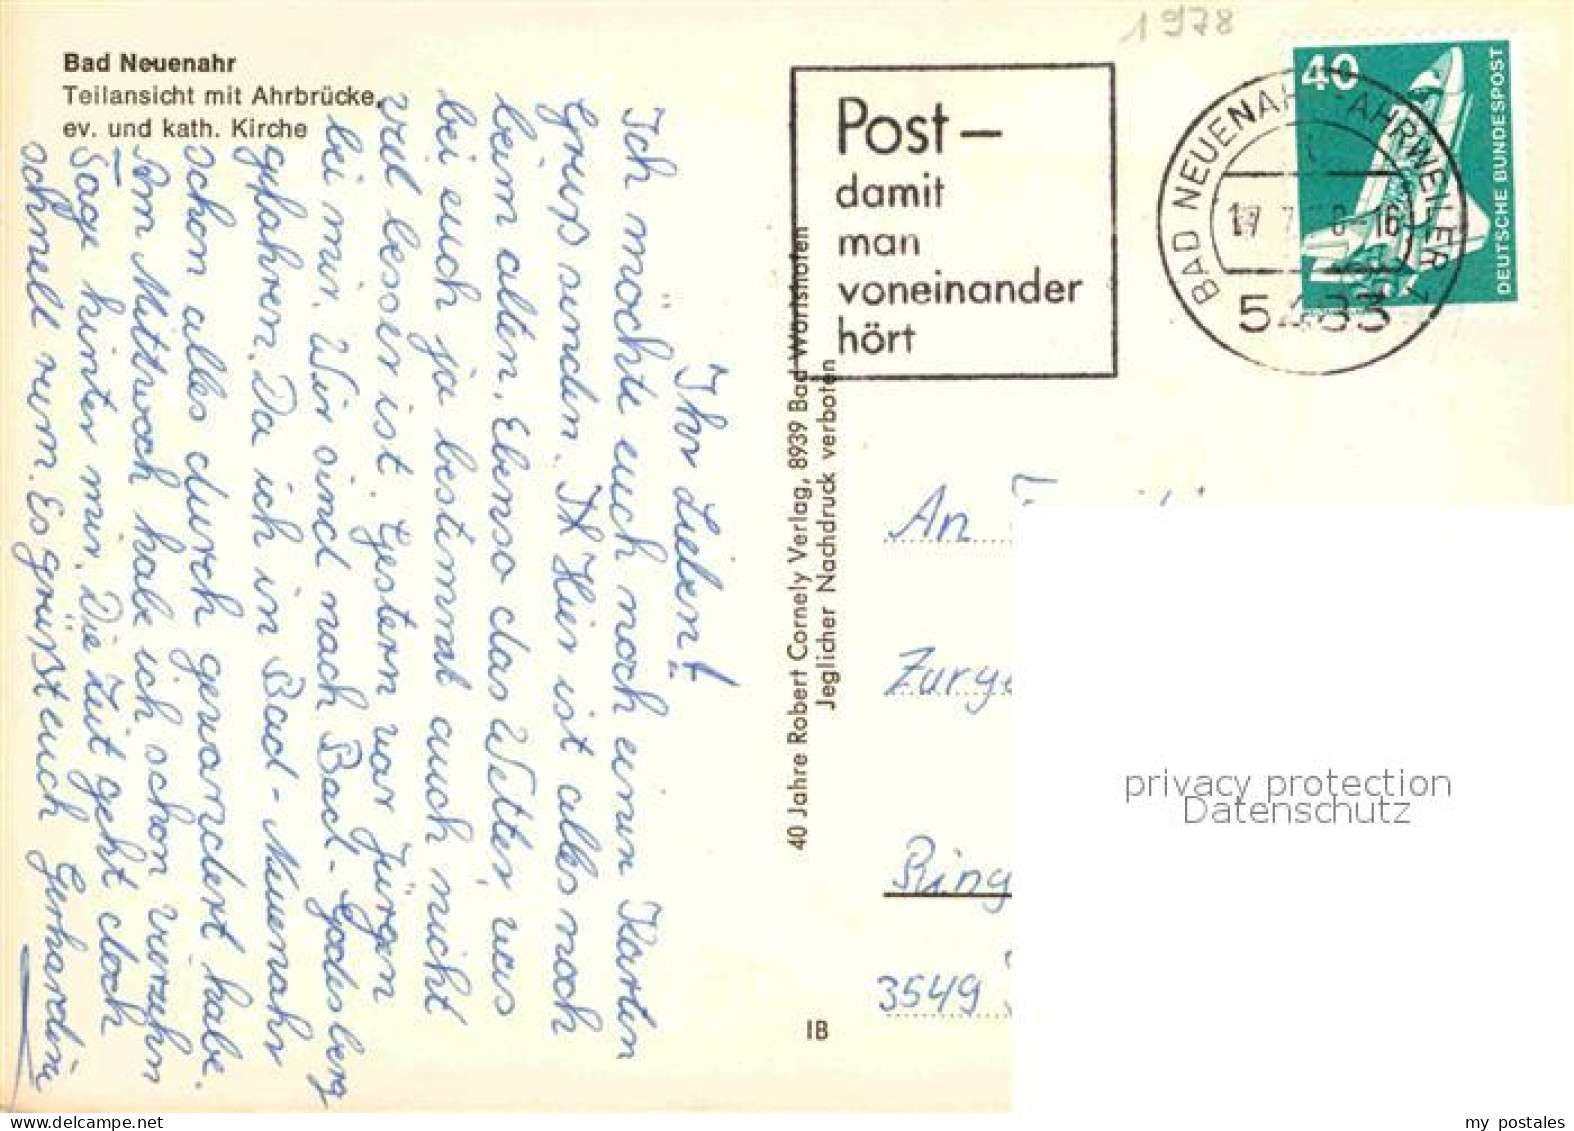 1978
Bad Neuenahr
Teilansicht mit Ahrbrücke,
ev. und kath. Kirche
Post –
damit
man
voneinander
hört
BAD NEUENAHR-AHRWEILER 1
5483
40
DEUTSCHE BUNDESPOST
Ihr Lieben!
Ich möchte euch noch einen Karten
Gruss senden. Hier ist alles noch
beim alten. Ebenso das Wetter, was
bei euch ja bestimmt auch nicht
viel besser ist. Gestern war Jürgen
bei mir. Wir sind nach Bad-Godesberg
gefahren. Da ich in Bad-Neuenahr
schon alles durch gewandert habe.
Am Mittwoch habe ich schon vierzehn
Tage hinter mir. Die Zeit geht doch
schnell rum. Es grüßt euch Gerhardin
40 Jahre Robert Cornely Verlag, 8939 Bad Wörishofen
Jeglicher Nachdruck verboten
IB
An
3549
privacy protection
Datenschutz
my postales